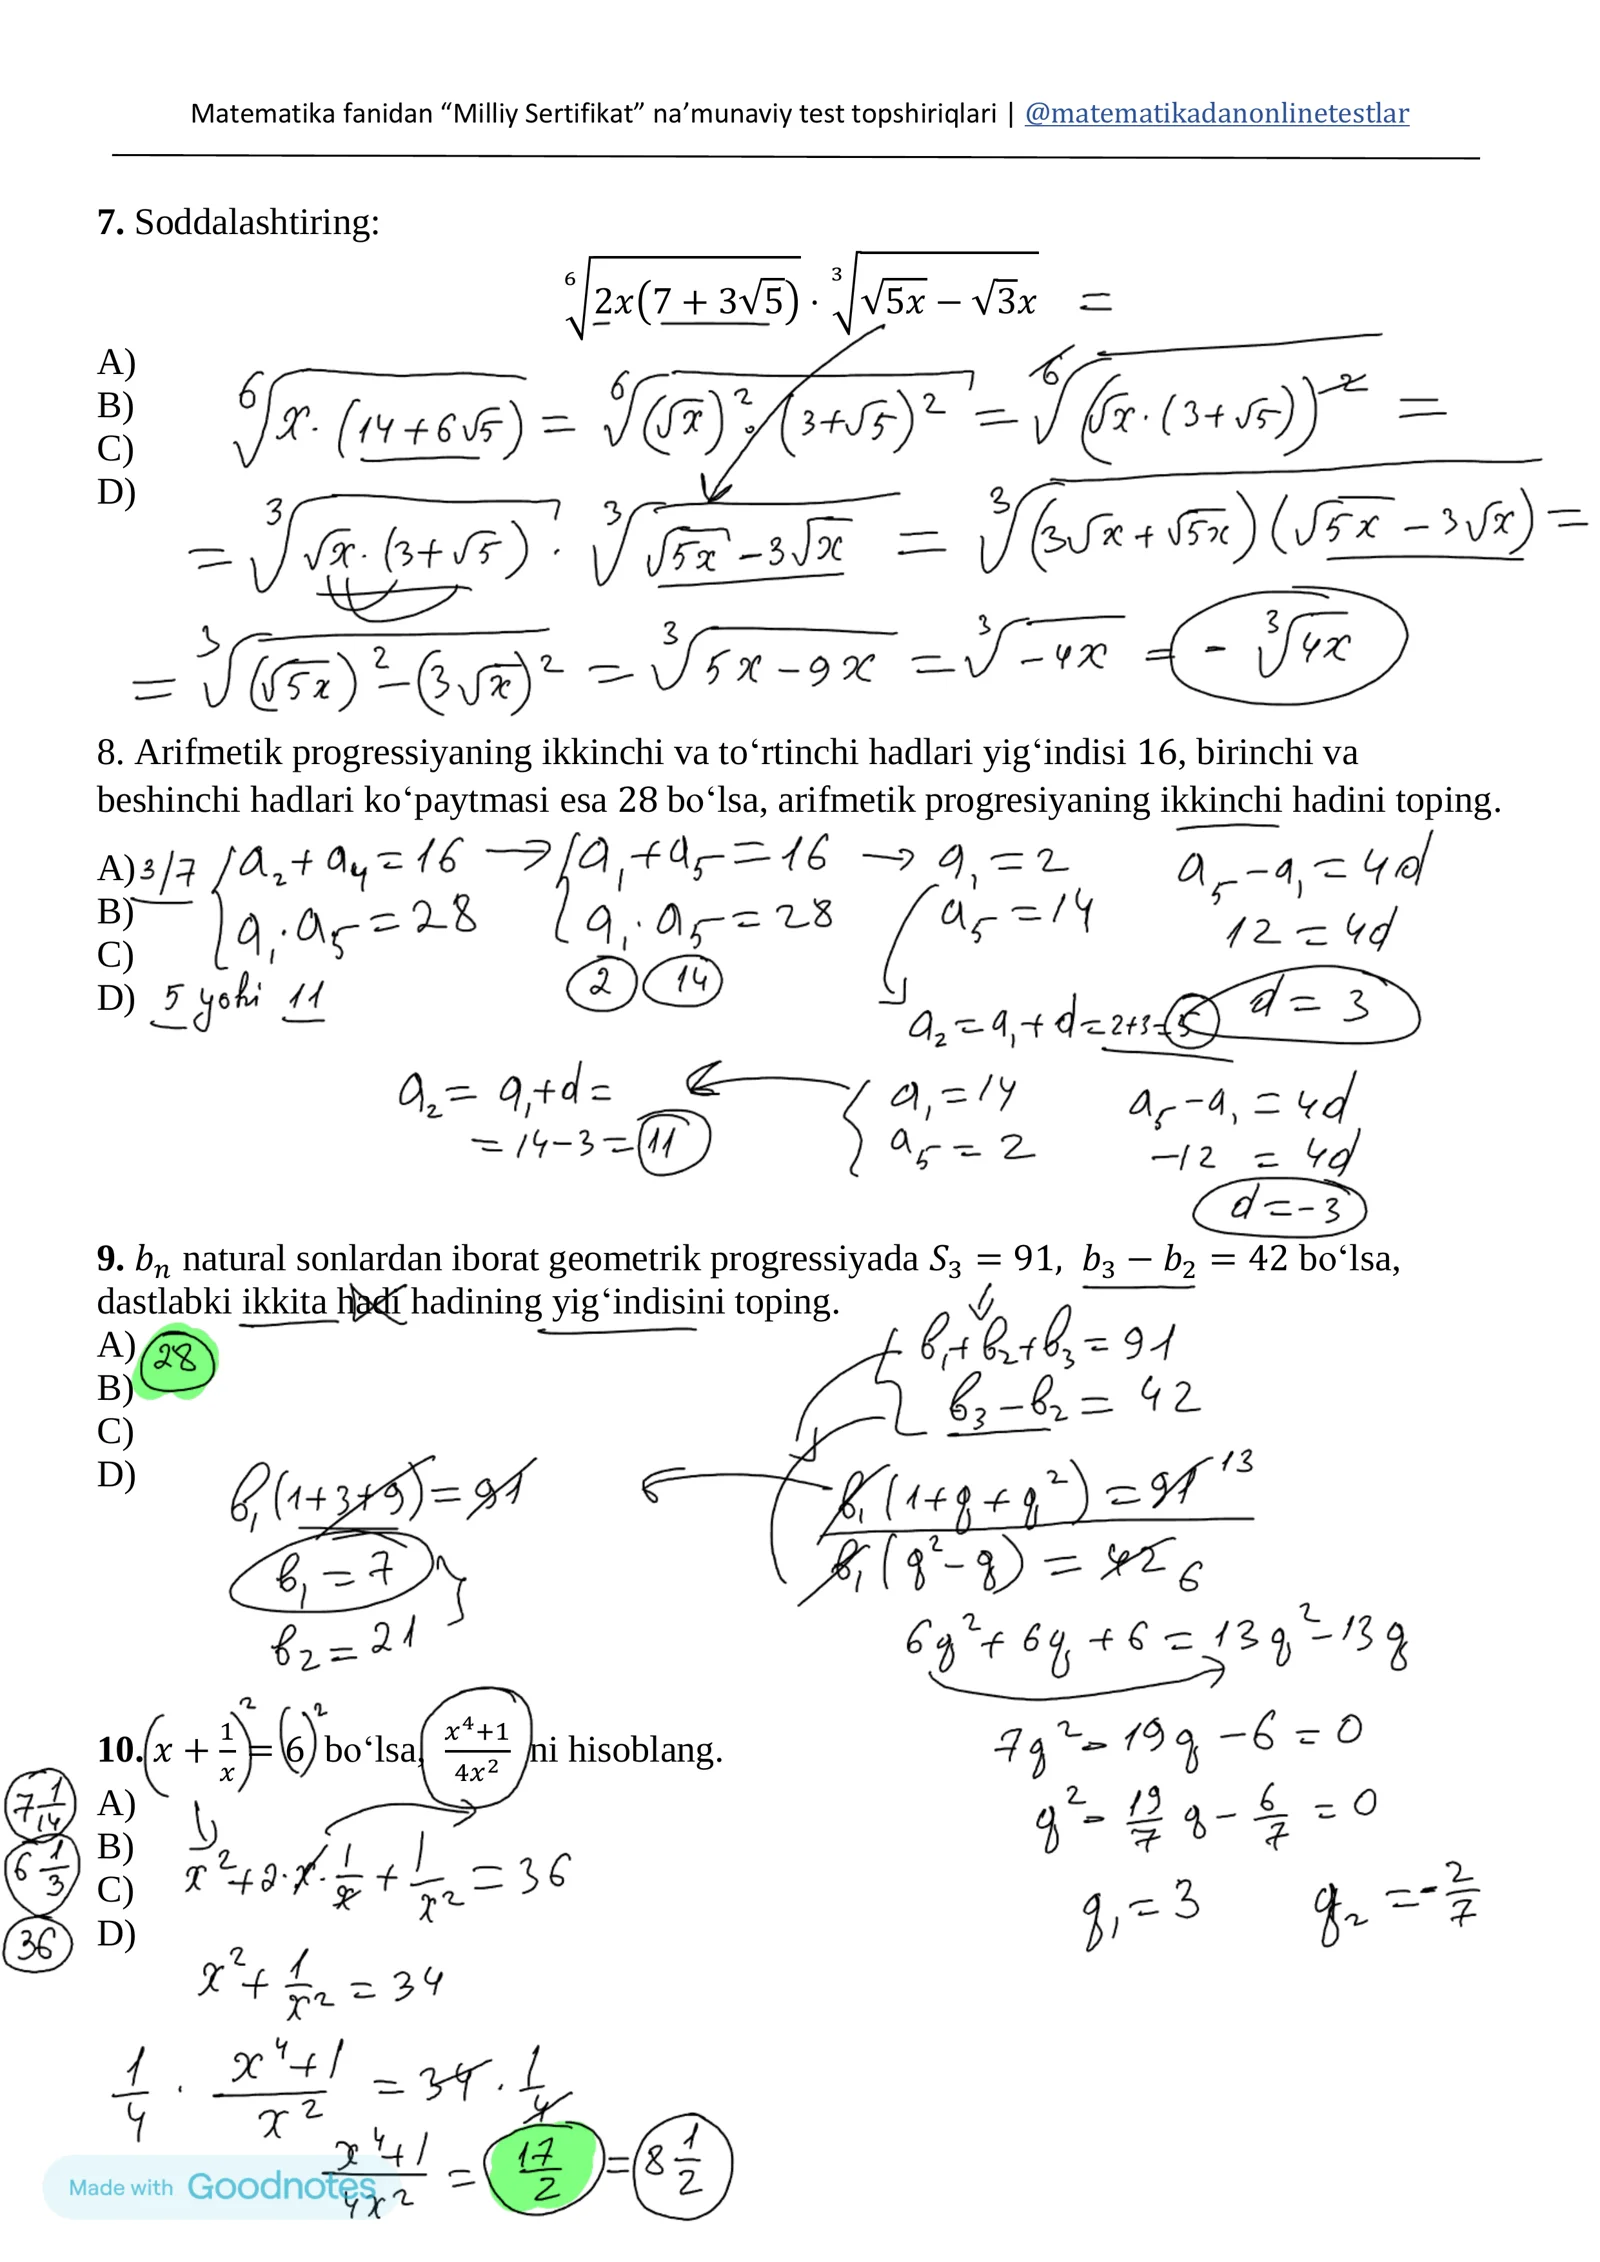 Matematika fanidan “Milliy Sertifikat” na’munaviy test topshiriqlari | @matematikadanonlinetestlar
7. Soddalashtiring:
⁶√(2x(7 + 3√5)) · ³√(√5x − √3x) =
A)
B)
C)
D)
⁶√(x · (14 + 6√5)) = ⁶√((√x)² · (3+√5)²) = ⁶√((√x · (3+√5))²) =
= ³√(√x · (3+√5)) · ³√(√5x − 3√x) = ³√((3√x + √5x)(√5x − 3√x)) =
= ³√((√5x)² − (3√x)²) = ³√(5x − 9x) = ³√(−4x) = − ³√(4x)
8. Arifmetik progressiyaning ikkinchi va to‘rtinchi hadlari yig‘indisi 16, birinchi va
beshinchi hadlari ko‘paytmasi esa 28 bo‘lsa, arifmetik progresiyaning ikkinchi hadini toping.
A) 3/7 { a₂ + a₄ = 16 → { a₁ + a₅ = 16 → a₁ = 2 a₅ − a₁ = 4d
B) a₁ · a₅ = 28 a₁ · a₅ = 28 a₅ = 14 12 = 4d
C) 2 14 d = 3
D) 5 yoki 11 a₂ = a₁ + d = 2+3=5
a₂ = a₁ + d = ← { a₁ = 14 a₅ − a₁ = 4d
= 14 − 3 = 11 a₅ = 2 −12 = 4d
d = −3
9. bₙ natural sonlardan iborat geometrik progressiyada S₃ = 91, b₃ − b₂ = 42 bo‘lsa,
dastlabki ikkita hadi hadining yig‘indisini toping.
A) 28 { b₁ + b₂ + b₃ = 91
B) b₃ − b₂ = 42
C)
D)
b₁(1+3+9) = 91 ← b₁(1 + q + q²) = 91 13
b₁ = 7 b₁(q² − q) = 42 6
b₂ = 21 6q² + 6q + 6 = 13q² − 13q
7q² − 19q − 6 = 0
q² − 19/7 q − 6/7 = 0
q₁ = 3 q₂ = −2/7
10. (x + 1/x)² = (6)² bo‘lsa, (x⁴+1)/(4x²) ni hisoblang.
7 1/14 A)
B)
6 1/3 C) x² + 2·x·1/x + 1/x² = 36
36 D)
x² + 1/x² = 34
1/4 · (x⁴+1)/x² = 34 · 1/4
(x⁴+1)/(4x²) = 17/2 = 8 1/2
Made with Goodnotes